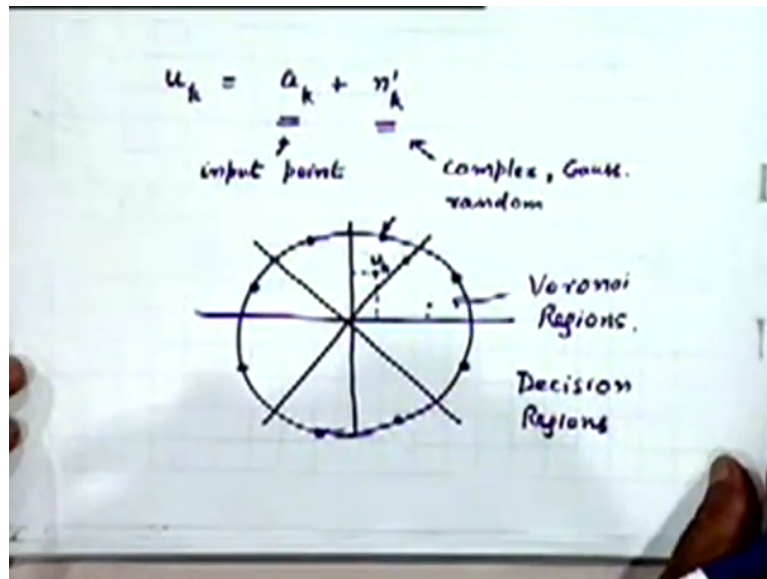 u_k = a_k + n'_k
input point
complex, Gauss.
random
u_k
Voronoi
Regions.
Decision
Regions